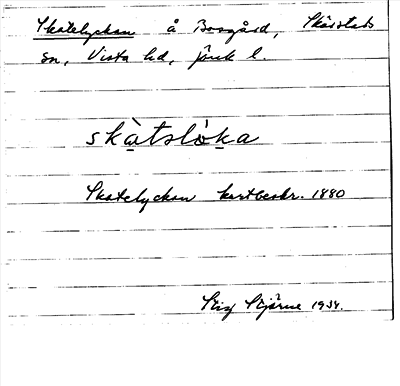 Skatelyckan å Boogård, Skärstads
sn, Vista hd, Jönk l.
skàtslò̱ka
Skatelyckan kartbeskr. 1880
Stig Stjärne 1934.